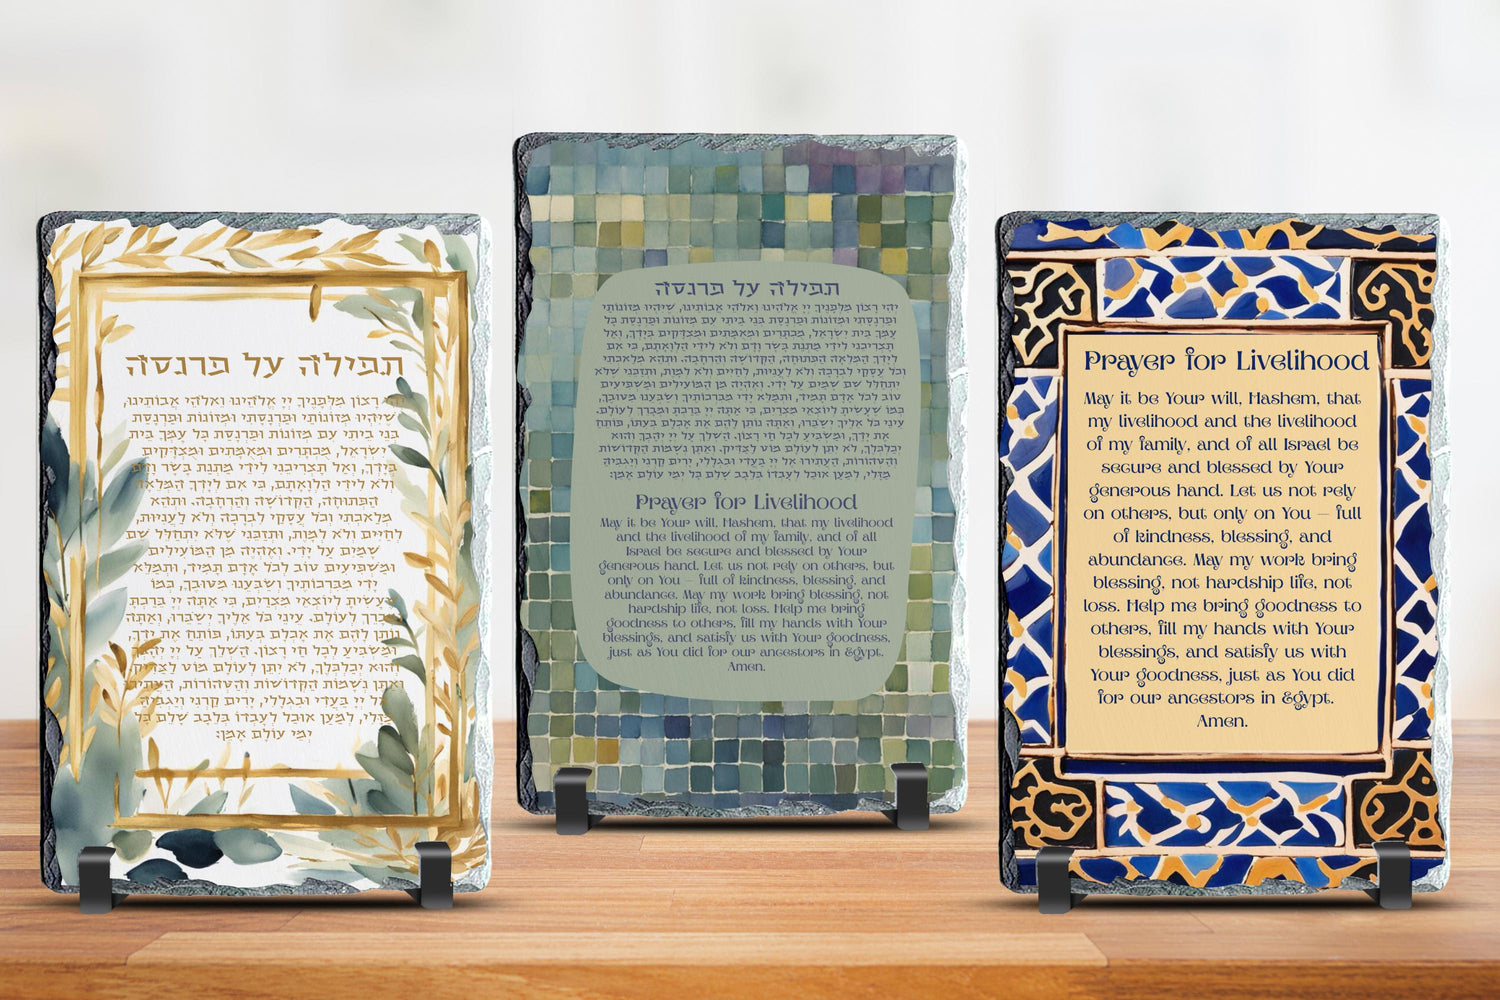 תפילה על פרנסה
יְהִי רָצוֹן מִלְּפָנֶיךָ יְיָ אֱלֹהֵינוּ וֵאלֹהֵי אֲבוֹתֵינוּ,
שֶׁיִּהְיוּ מְזוֹנוֹתַי וּפַרְנָסָתִי וּמְזוֹנוֹת וּפַרְנָסַת
בְּנֵי בֵיתִי עִם מְזוֹנוֹת וּפַרְנָסַת כָּל עַמְּךָ בֵּית
יִשְׂרָאֵל, מֻכְתָּרִים וּמְאֻמָּתִים וּמְצֻדָּקִים
בְּיָדֶךָ, וְאַל תַּצְרִיכֵנִי לִידֵי מַתְּנַת בָּשָׂר וָדָם
וְלֹא לִידֵי הַלְוָאָתָם, כִּי אִם לְיָדְךָ הַמְּלֵאָה
הַפְּתוּחָה, הַקְּדוֹשָׁה וְהָרְחָבָה. וּתְהֵא
מְלַאכְתִּי וְכָל עֲסָקַי לִבְרָכָה וְלֹא לַעֲנִיּוּת,
לְחַיִּים וְלֹא לְמָוֶת, וּתְזַכֵּנִי שֶׁלֹּא יִתְחַלֵּל שֵׁם
שָׁמַיִם עַל יָדִי. וְאֶהְיֶה מִן הַמּוֹעִילִים
וּמַשְׁפִּיעִים טוֹב לְכָל אָדָם תָּמִיד, וּתְמַלֵּא
יָדַי מִבִּרְכוֹתֶיךָ וְשַׂבְּעֵנוּ מִטּוּבֶךָ, כְּמוֹ
שֶׁעָשִׂיתָ לְיוֹצְאֵי מִצְרַיִם, כִּי אַתָּה יְיָ בֵּרַכְתָּ
וּמְבֹרָךְ לְעוֹלָם. עֵינֵי כֹל אֵלֶיךָ יְשַׂבֵּרוּ, וְאַתָּה
נוֹתֵן לָהֶם אֶת אָכְלָם בְּעִתּוֹ, פּוֹתֵחַ אֶת יָדֶךָ,
וּמַשְׂבִּיעַ לְכָל חַי רָצוֹן. הַשְׁלֵךְ עַל יְיָ יְהָבְךָ
וְהוּא יְכַלְכְּלֶךָ, לֹא יִתֵּן לְעוֹלָם מוֹט לַצַּדִּיק.
וְאַתֶּן נְשָׁמוֹת הַקְּדוֹשׁוֹת וְהַטְּהוֹרוֹת, הַעְתִּירוּ
אֶל יְיָ בַּעֲדִי וּבִגְלָלִי, יָרִים קַרְנִי וְיַגְבִּיהַּ
מַזָּלִי, לְמַעַן אוּכַל לְעָבְדוֹ בְּלֵבָב שָׁלֵם כָּל
יְמֵי עוֹלָם אָמֵן:
תפילה על פרנסה
יְהִי רָצוֹן מִלְּפָנֶיךָ יְיָ אֱלֹהֵינוּ וֵאלֹהֵי אֲבוֹתֵינוּ, שֶׁיִּהְיוּ מְזוֹנוֹתַי
וּפַרְנָסָתִי וּמְזוֹנוֹת וּפַרְנָסַת בְּנֵי בֵיתִי עִם מְזוֹנוֹת וּפַרְנָסַת כָּל
עַמְּךָ בֵּית יִשְׂרָאֵל, מֻכְתָּרִים וּמְאֻמָּתִים וּמְצֻדָּקִים בְּיָדֶךָ, וְאַל
תַּצְרִיכֵנִי לִידֵי מַתְּנַת בָּשָׂר וָדָם וְלֹא לִידֵי הַלְוָאָתָם, כִּי אִם
לְיָדְךָ הַמְּלֵאָה הַפְּתוּחָה, הַקְּדוֹשָׁה וְהָרְחָבָה. וּתְהֵא מְלַאכְתִּי
וְכָל עֲסָקַי לִבְרָכָה וְלֹא לַעֲנִיּוּת, לְחַיִּים וְלֹא לְמָוֶת, וּתְזַכֵּנִי שֶׁלֹּא
יִתְחַלֵּל שֵׁם שָׁמַיִם עַל יָדִי. וְאֶהְיֶה מִן הַמּוֹעִילִים וּמַשְׁפִּיעִים
טוֹב לְכָל אָדָם תָּמִיד, וּתְמַלֵּא יָדַי מִבִּרְכוֹתֶיךָ וְשַׂבְּעֵנוּ מִטּוּבֶךָ,
כְּמוֹ שֶׁעָשִׂיתָ לְיוֹצְאֵי מִצְרַיִם, כִּי אַתָּה יְיָ בֵּרַכְתָּ וּמְבֹרָךְ לְעוֹלָם.
עֵינֵי כֹל אֵלֶיךָ יְשַׂבֵּרוּ, וְאַתָּה נוֹתֵן לָהֶם אֶת אָכְלָם בְּעִתּוֹ, פּוֹתֵחַ
אֶת יָדֶךָ, וּמַשְׂבִּיעַ לְכָל חַי רָצוֹן. הַשְׁלֵךְ עַל יְיָ יְהָבְךָ וְהוּא
יְכַלְכְּלֶךָ, לֹא יִתֵּן לְעוֹלָם מוֹט לַצַּדִּיק. וְאַתֶּן נְשָׁמוֹת הַקְּדוֹשׁוֹת
וְהַטְּהוֹרוֹת, הַעְתִּירוּ אֶל יְיָ בַּעֲדִי וּבִגְלָלִי, יָרִים קַרְנִי וְיַגְבִּיהַּ
מַזָּלִי, לְמַעַן אוּכַל לְעָבְדוֹ בְּלֵבָב שָׁלֵם כָּל יְמֵי עוֹלָם אָמֵן:
Prayer for Livelihood
May it be Your will, Hashem, that my livelihood
and the livelihood of my family, and of all
Israel be secure and blessed by Your
generous hand. Let us not rely on others, but
only on You – full of kindness, blessing, and
abundance. May my work bring blessing, not
hardship life, not loss. Help me bring
goodness to others, fill my hands with Your
blessings, and satisfy us with Your goodness,
just as You did for our ancestors in Egypt.
Amen.
Prayer for Livelihood
May it be Your will, Hashem, that
my livelihood and the livelihood
of my family, and of all Israel be
secure and blessed by Your
generous hand. Let us not rely
on others, but only on You – full
of kindness, blessing, and
abundance. May my work bring
blessing, not hardship life, not
loss. Help me bring goodness to
others, fill my hands with Your
blessings, and satisfy us with
Your goodness, just as You did
for our ancestors in Egypt.
Amen.